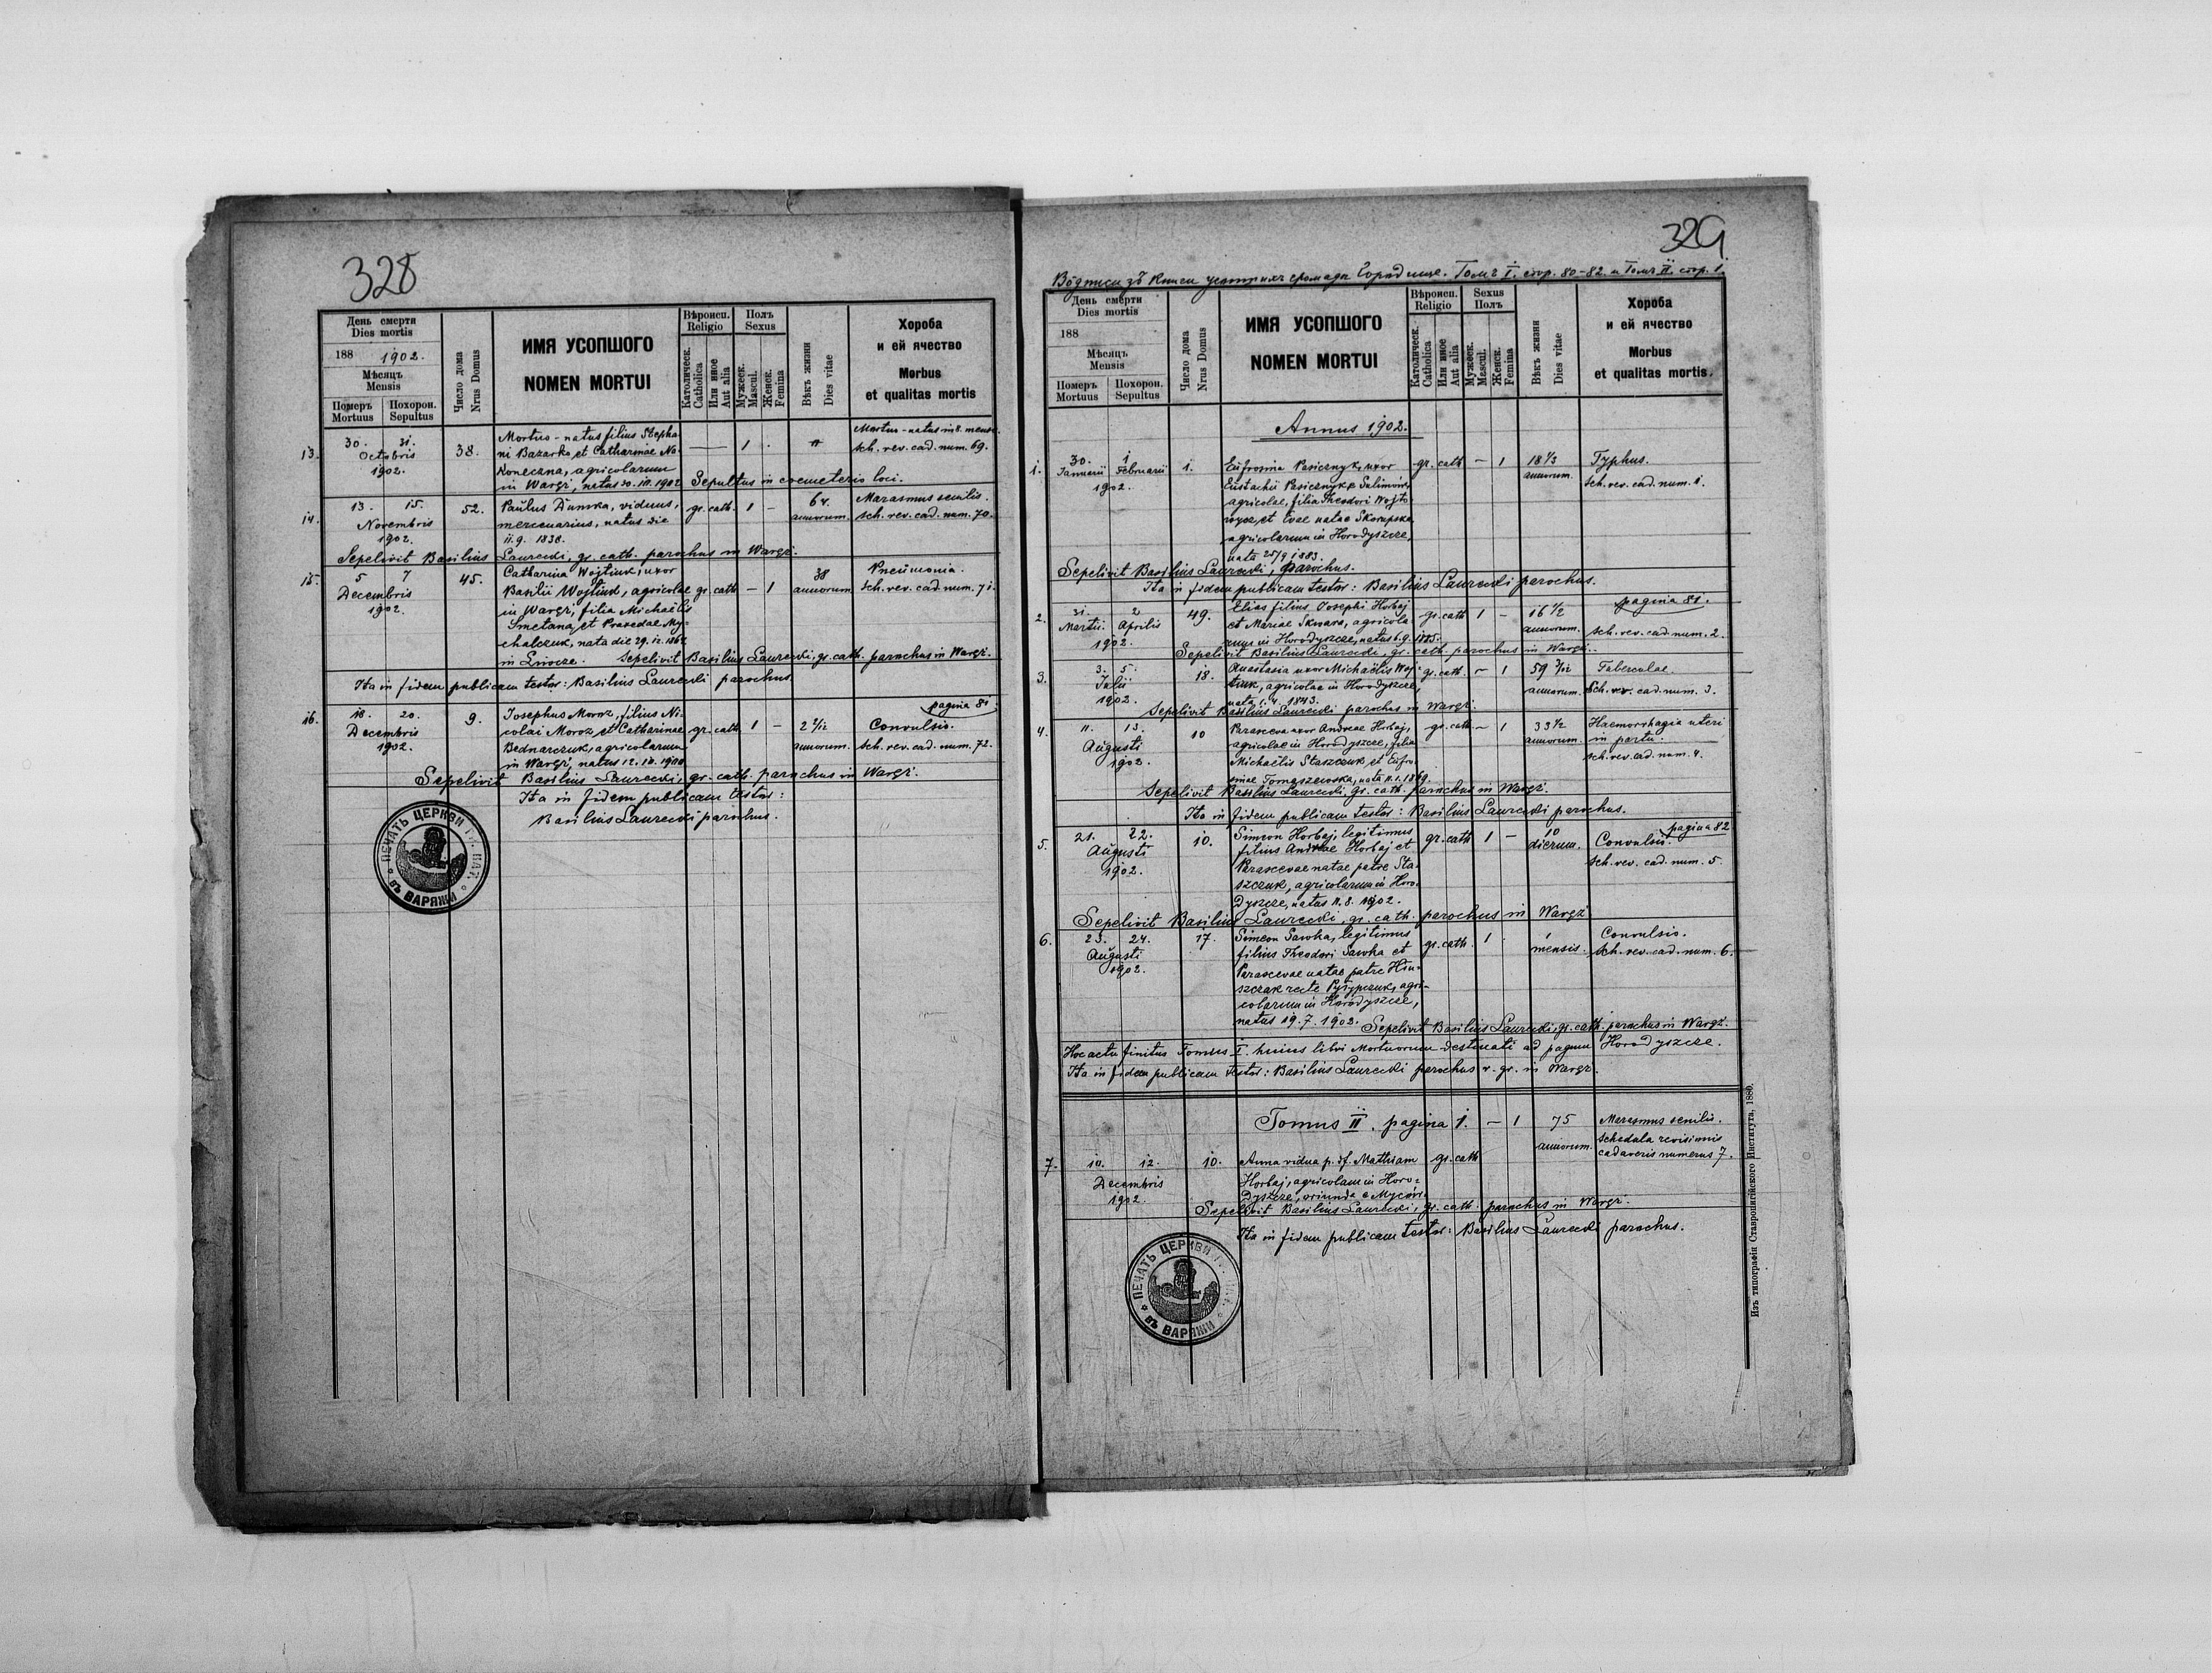 328
День смерти
Dies mortis
188 1902.
Мѣсяцъ
Mensis
Померъ Mortuus
Похорон. Sepultus
Число дома
Nrus Domus
ИМЯ УСОПШОГО
NOMEN MORTUI
Вѣроисп.
Religio
Католическ.
Catholica
Или иное
Aut alia
Полъ
Sexus
Мужеск.
Mascul.
Женск.
Femina
Вѣкъ жизни
Dies vitae
Хороба
и ей ячество
Morbus
et qualitas mortis
13. 30. 31. Octobris 1902. 38.
Mortuo-natus filius Stepha-
ni Bazarko, et Catharinae Na-
koneczna, agricolarum
in Waręż, natus 30.10.1902 Sepultus in coemeterio loci.
1
Mortuo-natus in 8. mense.
sch. rev. cad. num. 69.
14. 13. 15. Novembris 1902. 52.
Paulus Dumka, viduus,
mercenarius, natus die
11.9. 1838.
gr. cath. 1 –
64. annorum.
Marasmus senilis.
sch. rev. cad. num. 70.
Sepelivit Basilius Laurecki, gr. cath. parochus in Waręż.
15. 5 7 Decembris 1902. 45.
Catharina Wojtiuk, uxor
Basilii Wojtiuk, agricolae
in Waręż, filia Michaëlis
Smetana, et Praxedae My-
chalczuk, nata die 29.12.1864
in Liwcze. Sepelivit Basilius Laurecki, gr. cath. parochus in Waręż.
gr. cath – 1
38 annorum
Pneumonia.
sch. rev. cad. num. 71.
Ita in fidem publicam testor: Basilius Laurecki parochus.
pagina 81.
16. 18. 20. Decembris 1902. 9.
Josephus Moroz, filius Ni-
colai Moroz et Catharinae
Bednarczuk, agricolarum
in Waręż, natus 12.10.1900
gr. cath. 1 –
2 2/12 annorum.
Convulsio.
sch. rev. cad. num. 72.
Sepelivit Basilius Laurecki, gr. cath. parochus in Waręż.
Ita in fidem publicam testor:
Basilius Laurecki parochus.
ПЕЧАТЬ ЦЕРКВИ
ВЪ ВАРЯЖИ
329
Вôдписи зъ Книги усопшихъ громады Городище. Томъ I. стор. 80-82. и Томъ II. стор. 1.
День смерти
Dies mortis
188
Мѣсяцъ
Mensis
Померъ Mortuus
Похорон. Sepultus
Число дома
Nrus Domus
ИМЯ УСОПШОГО
NOMEN MORTUI
Вѣроисп.
Religio
Католическ.
Catholica
Или иное
Aut alia
Sexus
Полъ
Мужеск.
Mascul.
Женск.
Femina
Вѣкъ жизни
Dies vitae
Хороба
и ей ячество
Morbus
et qualitas mortis.
Annus 1902.
1. 30. Januarii 1 Februarii 1902. 1.
Eufrosina Pasicznyk, uxor
Eustachii Pasicznyk
agricolae, filia Theodori Wojto-
wycz, et Evae natae Skorupska
agricolarum in Horodyszcze,
nata 25/9 1883.
gr. cath – 1
18 1/3 annorum.
Typhus.
sch. rev. cad. num. 1.
Sepelivit Basilius Laurecki, parochus.
Ita in fidem publicam testor: Basilius Laurecki parochus.
pagina 81.
2. 31. Martii 2 Aprilis 1902. 49.
Elias filius Josephi Horbaj
et Mariae Skwara, agricola-
rum in Horodyszcze, natus 6.9.1885.
gr. cath 1 –
16 1/2 annorum.
sch. rev. cad. num. 2.
Sepelivit Basilius Laurecki, gr. cath. parochus in Waręż.
3. 3. 5. Julii 1902. 18.
Anastasia uxor Michaëlis Woj-
tiuk, agricolae in Horodyszcze,
nata 1.4. 1843.
gr. cath. – 1
59 3/12 annorum.
Taberculae.
Sch. rev. cad. num. 3.
Sepelivit Basilius Laurecki parochus in Waręż.
4. 11. 13. Augusti 1902. 10
Parasceva uxor Andreae Horbaj,
agricolae in Horodyszcze, filia
Michaëlis Staszczuk, et Eufro-
sinae Tomaszewska, nata 11.1.1869.
gr. cath. – 1
33 1/2 annorum.
Haemorrhagia uteri
in partu.
sch. rev. cad. num. 4.
Sepelivit Basilius Laurecki, gr. cath. parochus in Waręż.
Ita in fidem publicam testor: Basilius Laurecki parochus.
pagina 82
5. 21. 22. Augusti 1902. 10.
Simeon Horbaj, legitimus
filius Andreae Horbaj et
Parascevae natae patre Sta-
szczuk, agricolarum in Horo-
dyszcze, natus 11.8.1902.
gr. cath 1 –
10 dierum.
Convulsio.
sch. rev. cad. num. 5.
Sepelivit Basilius Laurecki, gr. cath. parochus in Waręż
6. 23. 24. Augusti 1902. 17.
Simeon Sawka, legitimus
filius Theodori Sawka et
Parascevae natae patre
recte agri-
colarum in Horodyszcze,
natus 19.7.1902. Sepelivit Basilius Laurecki, gr. cath. parochus in Waręż.
gr. cath. 1
1 mensis.
Convulsio.
sch. rev. cad. num. 6.
Hoc actu finitus Tomus I. huius libri Mortuorum destinati ad pagum Horodyszcze.
Ita in fidem publicam testor: Basilius Laurecki parochus r. gr. in Waręż.
Tomus II. pagina 1.
7. 10. 12. Decembris 1902. 10.
Anna vidua p. df. Mathiam
Horbaj, agricolam in Horo-
dyszcze, oriunda e
gr. cath – 1
75 annorum.
Marasmus senilis.
Schedula revisionis
cadaveris numerus 7.
Sepelivit Basilius Laurecki, gr. cath. parochus in Waręż.
Ita in fidem publicam testor: Basilius Laurecki parochus.
ПЕЧАТЬ ЦЕРКВИ
ВЪ ВАРЯЖИ
Изъ типографіи Ставропигійского Института, 1880.